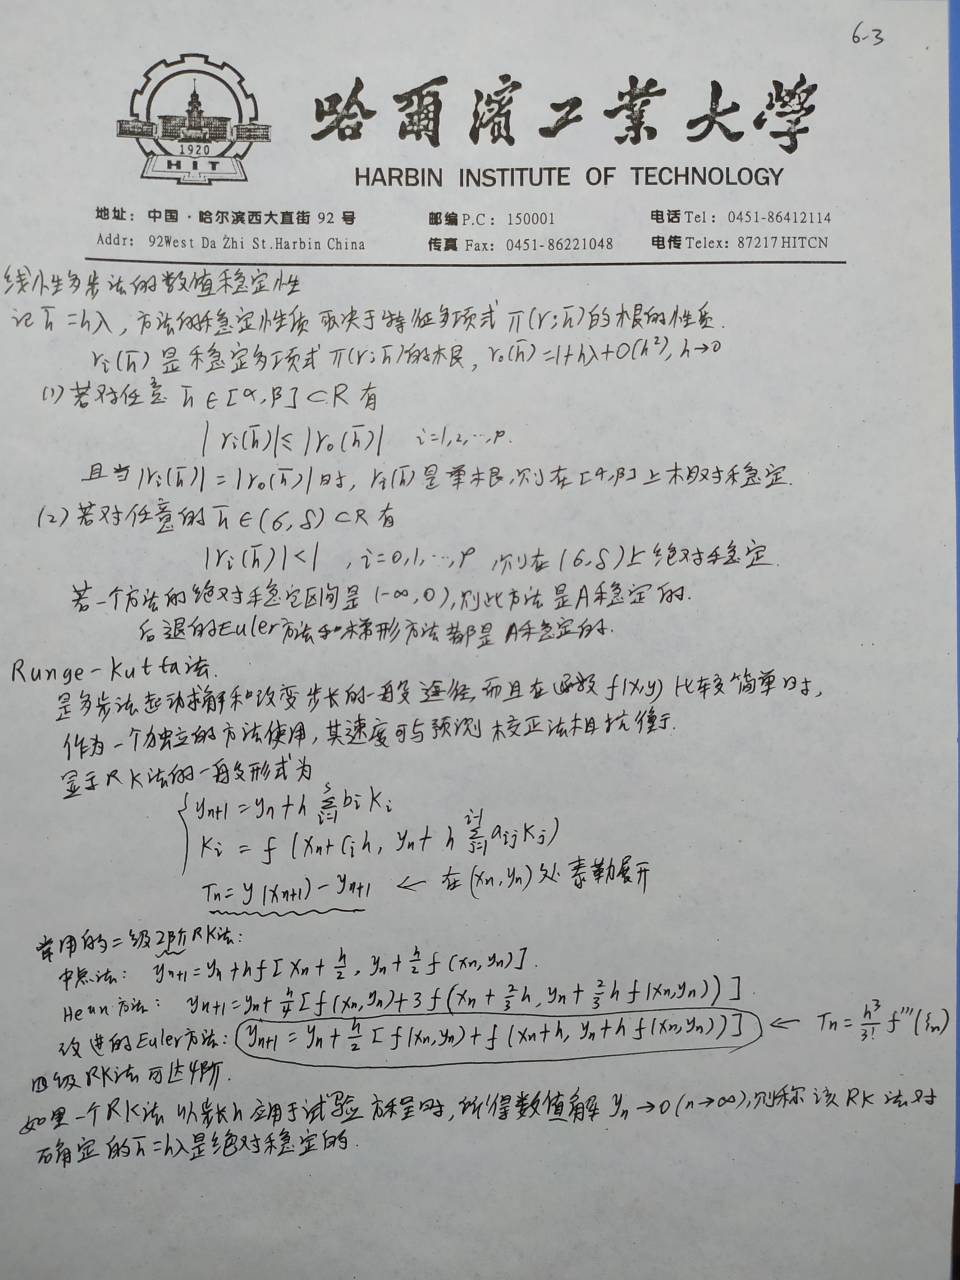 6-3
1920
HIT
哈爾濱工業大學
HARBIN INSTITUTE OF TECHNOLOGY
地址: 中国·哈尔滨西大直街 92 号 邮编 P.C: 150001 电话 Tel: 0451-86412114
Addr: 92West Da Zhi St.Harbin China 传真 Fax: 0451-86221048 电传 Telex: 87217 HITCN
线性多步法的数值稳定性
记 h̄=hλ, 方法的稳定性质取决于特征多项式 π(r;h̄)的根的性质.
ri(h̄) 是稳定多项式 π(r;h̄)的根, r₀(h̄)=1+hλ+O(h²), h→0
(1) 若对任意 h̄∈[α,β]⊂R 有
|ri(h̄)|≤|r₀(h̄)| i=1,2,…,p.
且当|ri(h̄)|=|r₀(h̄)|时, ri(h̄)是单根,则在[α,β]上相对稳定.
(2) 若对任意的 h̄∈(σ,δ)⊂R 有
|ri(h̄)|<1 , i=0,1,…,p 则在(σ,δ)上绝对稳定.
若一个方法的绝对稳定区间是(-∞,0),则此方法是A稳定的.
后退的Euler方法和梯形方法都是A稳定的.
Runge-Kutta法.
是多步法起动求解和改变步长的一般途径,而且在函数 f(x,y) 比较简单时,
作为一个独立的方法使用,其速度可与预测校正法相抗衡.
显式RK法的一般形式为
{ yn+1=yn+h Σ(i=1→s) biKi
Ki=f(xn+cih, yn+h Σ(j=1→i-1) aijKj)
Tn=y(xn+1)-yn+1 ← 在(xn,yn)处泰勒展开
常用的二级2阶RK法:
中点法: yn+1=yn+hf[xn+h/2, yn+h/2 f(xn,yn)].
Heun方法: yn+1=yn+h/4[f(xn,yn)+3f(xn+2/3h, yn+2/3hf(xn,yn))].
改进的Euler方法: yn+1=yn+h/2[f(xn,yn)+f(xn+h, yn+hf(xn,yn))] ← Tn=h³/3! f'''(ξn)
四级RK法可达4阶.
如果一个RK法以步长h应用于试验方程时,所得数值解 yn→0(n→∞),则称该RK法对
确定的h̄=hλ是绝对稳定的.